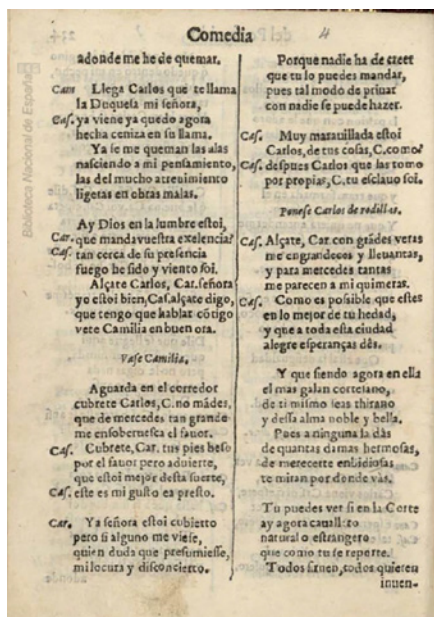 Comedia
4
adonde me he de quemar.
Cam Llega Carlos que te llama
la Duquesa mi señora,
Cas. ya viene ya quedo agora
hecha ceniza en su llama.
Ya se me queman las alas
nasciendo a mi pensamiento,
las del mucho atreuimiento
ligeras en obras malas.
Ay Dios en la lumbre estoi,
Car. que manda vuestra exelencia?
Cas. tan cerca de su presencia
fuego he sido y viento soi.
Alçate Carlos, Car. señora
yo estoi bien, Cas. alçate digo,
que tengo que hablar cõtigo
vete Camilia en buen ora.
Vase Camilia.
Aguarda en el corredor
cubrete Carlos, C. no mãdes,
que de mercedes tan grande
me ensoberuesca el fauor.
Cas. Cubrete, Car. tus pies beso
por el fauor pero aduierte,
que estoi mejor desta suerte,
Cas. este es mi gusto ea presto.
Car. Ya señora estoi cubierto
pero si alguno me viese,
quien duda que presumiesse,
mi locura y disconcierto.
Porque nadie ha de creer
que tu lo puedes mandar,
pues tal modo de priuar
con nadie se puede hazer.
Cas. Muy marauillada estoi
Carlos, de tus cosas, C. como?
Cas. despues Carlos que las tomo
por propias, C. tu esclauo soi.
Ponese Carlos de rodillas.
Cas. Alçate, Car. con grãdes veras
me engrandeces y lleuantas,
y para mercedes tantas
me parecen a mi quimeras.
Cas. Como es posible que estes
en lo mejor de tu hedad,
y que a toda esta ciudad
alegre esperanças dès.
Y que siendo agora en ella
el mas galan cortesano,
de ti mismo seas thirano
y dessa alma noble y bella.
Pues a ninguna la dàs
de quantas damas hermosas,
de merecerte enbidiosas
te miran por donde vàs.
Tu puedes ver si en la Corte
ay agora cauallero
natural o estrangero
que como tu se reporte.
Todos siruen, todos quieren
inuen-
Biblioteca Nacional de España